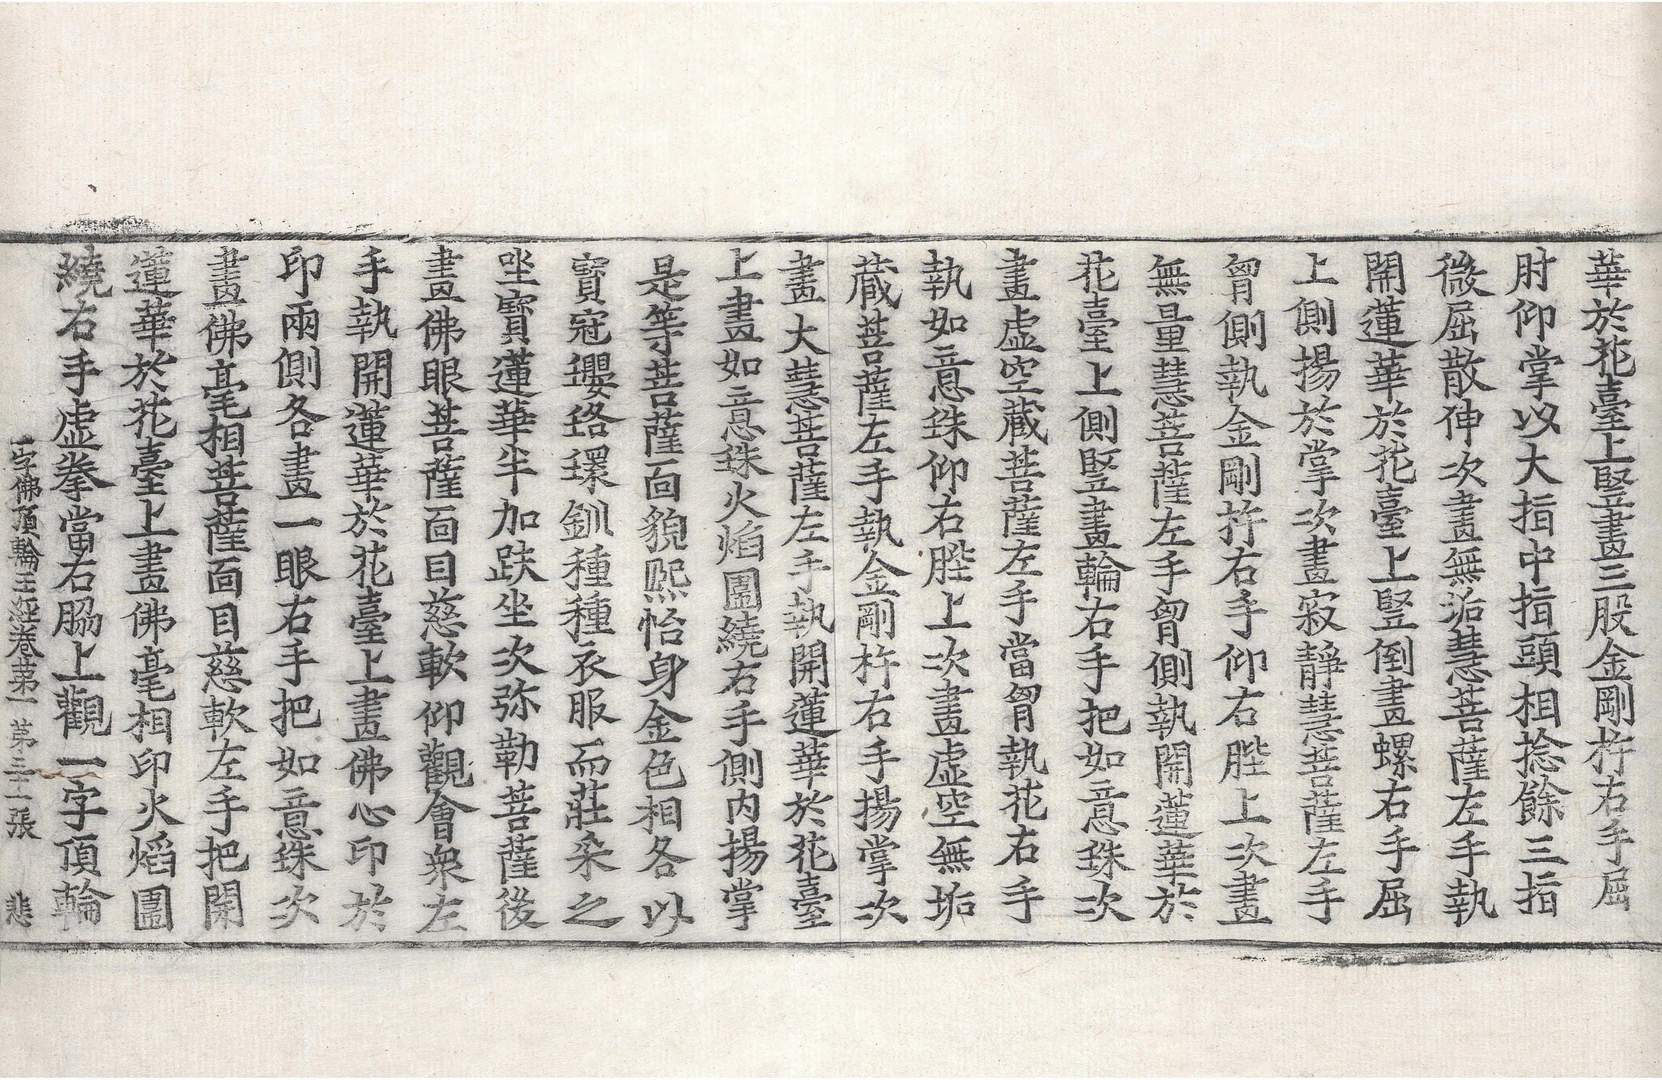 華於花臺上豎畫三股金剛杵右手屈
肘仰掌以大指中指頭相捻餘三指
微屈散伸次畫無垢慧菩薩左手執
開蓮華於花臺上豎倒畫螺右手屈
上側揚於掌次畫寂靜慧菩薩左手
胷側執金剛杵右手仰右䏶上次畫
無量慧菩薩左手胷側執開蓮華於
花臺上側竪畫輪右手把如意珠次
畫虛空藏菩薩左手當胷執花右手
執如意珠仰右䏶上次畫虛空無垢
藏菩薩左手執金剛杵右手揚掌次
畫大慧菩薩左手執開蓮華於花臺
上畫如意珠火焰圍繞右手側內揚掌
是等菩薩面貌熙怡身金色相各以
寶冠瓔珞環釧種種衣服而莊彩之
坐寶蓮華半加趺坐次弥勒菩薩後
畫佛眼菩薩面目慈軟仰觀會衆左
手執開蓮華於花臺上畫佛心印於
印兩側各畫一眼右手把如意珠次
畫佛毫相菩薩面目慈軟左手把開
蓮華於花臺上畫佛毫相印火焰圍
繞右手虛拳當右脇上觀一字頂輪
一字佛頂輪王經卷第一 第三十一張 悲